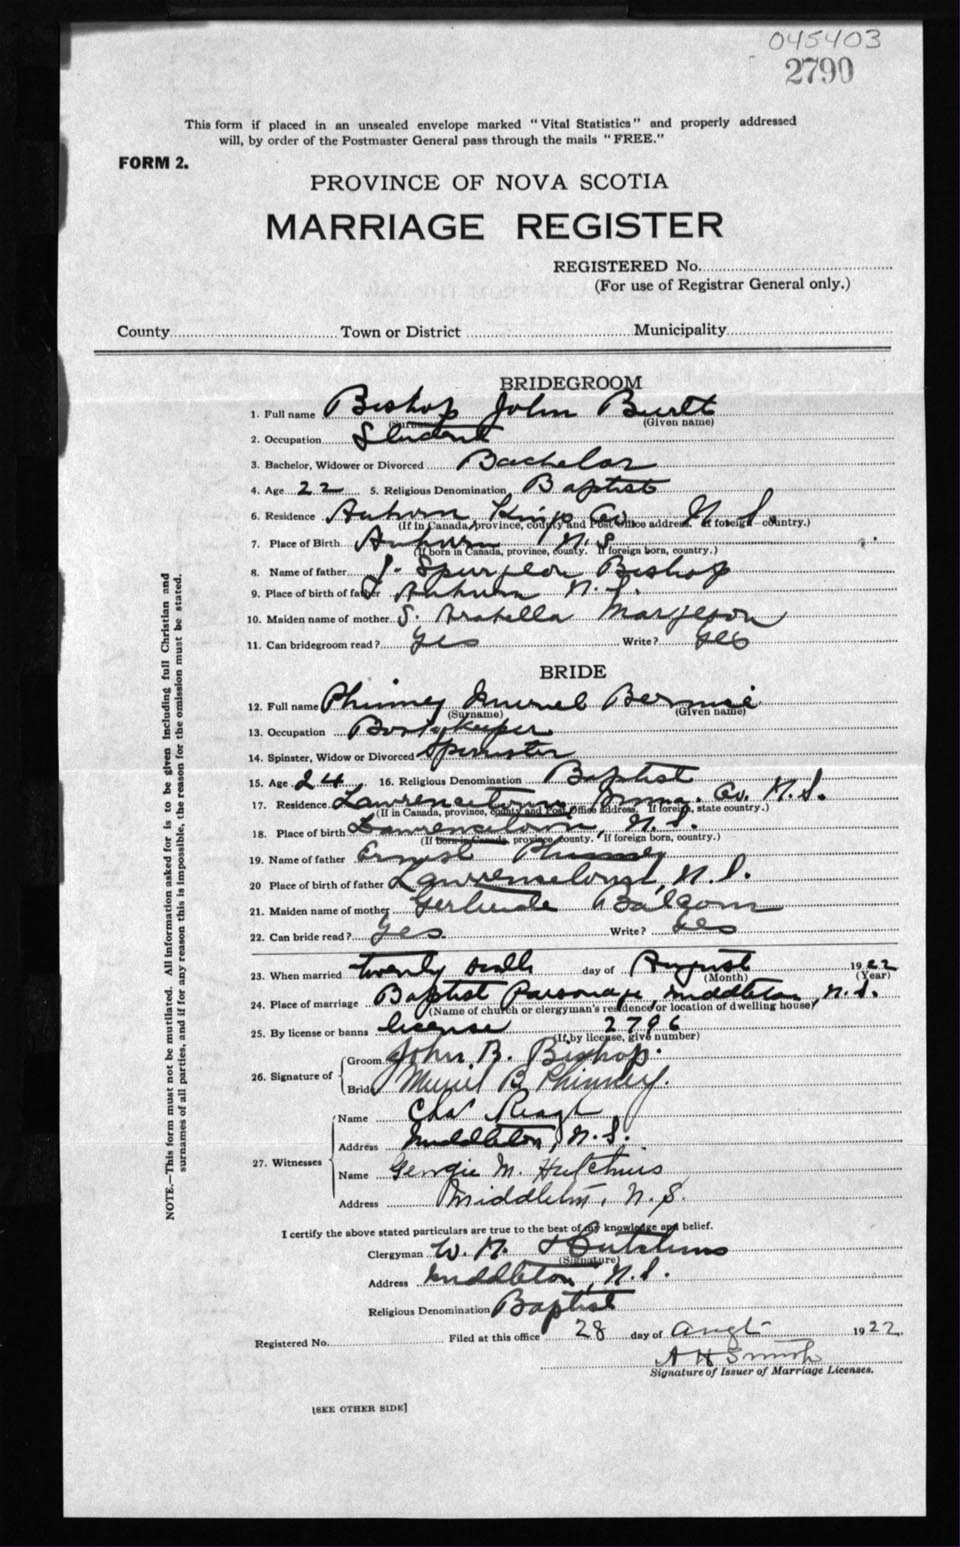 045403
2790
This form if placed in an unsealed envelope marked "Vital Statistics" and properly addressed
will, by order of the Postmaster General pass through the mails "FREE."
FORM 2.
PROVINCE OF NOVA SCOTIA
MARRIAGE REGISTER
REGISTERED No.
(For use of Registrar General only.)
County Town or District Municipality
BRIDEGROOM
1. Full name Bishop John Burtt
(Surname) (Given name)
2. Occupation Student
3. Bachelor, Widower or Divorced Bachelor
4. Age 22 5. Religious Denomination Baptist
6. Residence Auburn Kings Co. N. S.
(If in Canada, province, county and Post Office address. If foreign country.)
7. Place of Birth Auburn N. S.
(If born in Canada, province, county. If foreign born, country.)
8. Name of father J. Spurgeon Bishop
9. Place of birth of father Auburn N. S.
10. Maiden name of mother S. Arabella Margeson
11. Can bridegroom read? Yes Write? Yes
BRIDE
12. Full name Phinney Muriel Bernice
(Surname) (Given name)
13. Occupation Bookkeeper
14. Spinster, Widow or Divorced Spinster
15. Age 24 16. Religious Denomination Baptist
17. Residence Lawrencetown, Anna. Co. N. S.
(If in Canada, province, county and Post Office address. If foreign, state country.)
18. Place of birth Lawrencetown, N. S.
(If born in Canada, province, county. If foreign born, country.)
19. Name of father Ernest Phinney
20 Place of birth of father Lawrencetown, N. S.
21. Maiden name of mother Gertrude Balcom
22. Can bride read? Yes Write? Yes
23. When married twenty sixth day of August 1922
(Month) (Year)
24. Place of marriage Baptist Parsonage, Middleton, N. S.
(Name of church or clergyman's residence or location of dwelling house)
25. By license or banns license 2796
(If by license, give number)
26. Signature of Groom John B. Bishop.
Bride Muriel B Phinney.
27. Witnesses Name Chas Reagh
Address Middleton, N. S.
Name Georgie M. Hutchins
Address Middleton, N. S.
I certify the above stated particulars are true to the best of my knowledge and belief.
Clergyman W. N. Hutchins
(Signature)
Address Middleton, N. S.
Religious Denomination Baptist
Registered No. Filed at this office 28 day of Augt 1922.
A H Smith
Signature of Issuer of Marriage Licenses.
[SEE OTHER SIDE]
NOTE.—This form must not be mutilated. All information asked for is to be given including full Christian and
surnames of all parties, and if for any reason this is impossible, the reason for the omission must be stated.